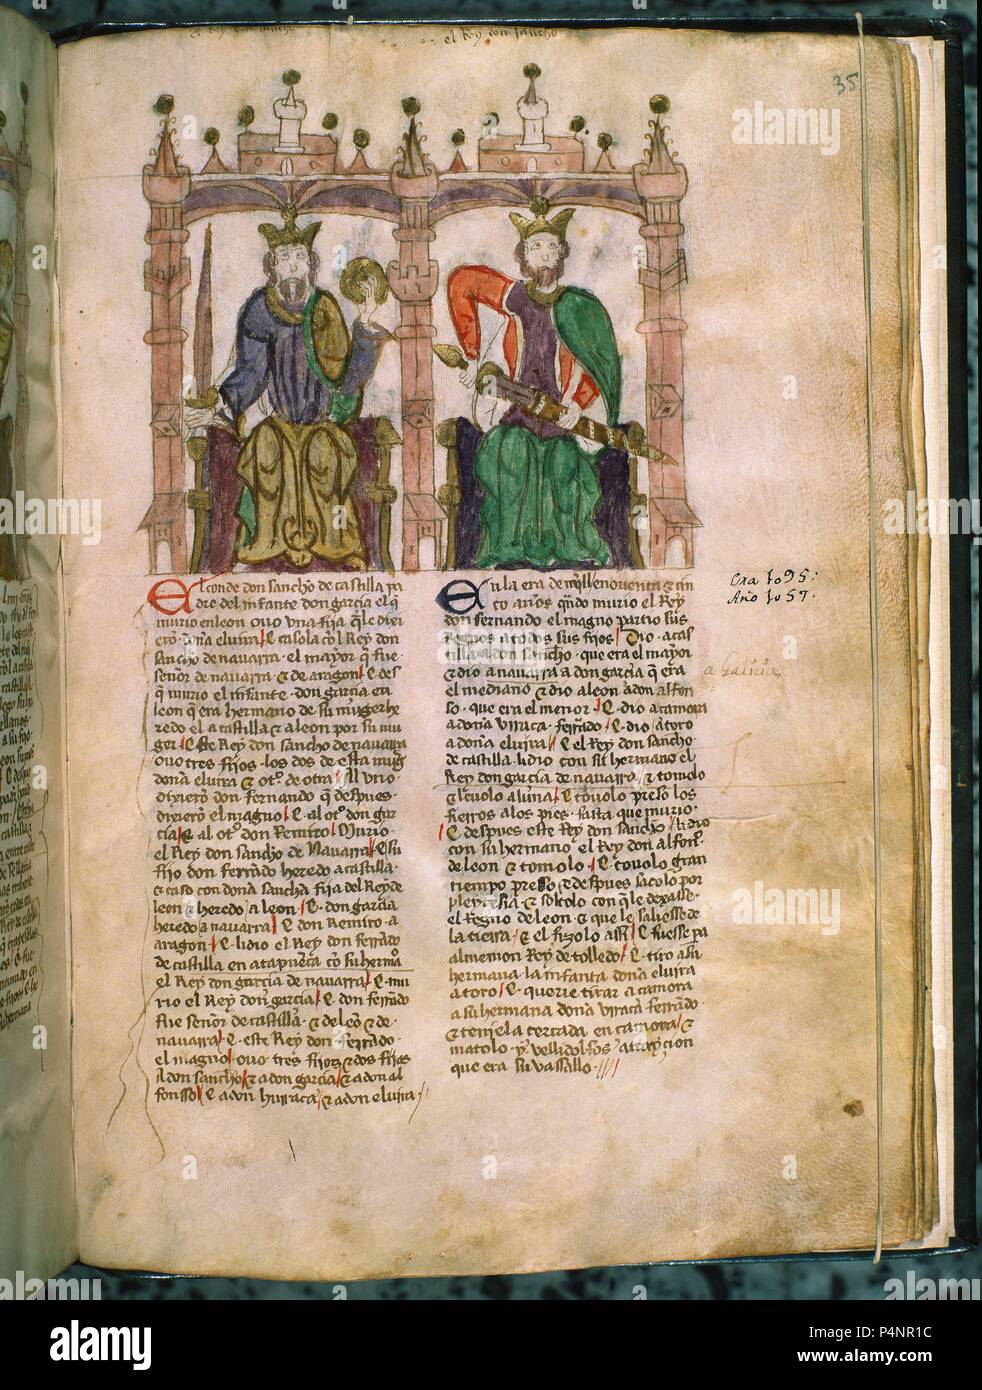 el Rey don sancho
el Rey don sancho
35
El conde don sancho de castilla pa
dre del infante don garcia el q
murio en leon ouo una fija q le dixi
ero doña eluira E casola co l Rey don
sancho de nauarra el mayor q fue
señor de nauarra & de aragon E des
q murio el infante don garcia en
leon q era hermano de su muger he
redo el a castilla & a leon por su mu
ger E este Rey don sancho de nauarra
ouo tres fijos los dos de esta mug
doña eluira & ot de otra Al uno
dixiero don fernando q despues
dixiero el magno E al ot don gar
cia E al ot don Remiro Murio
el Rey don sancho de Nauarra E su
fijo don ferrado heredo a castilla
& caso con doña sancha fija del Rey de
leon & heredo a leon E don garcia
heredo a nauarra E don Remiro a
aragon E lidio el Rey don ferrado
de castilla en atapuerca co su hermo
el Rey don garcia de nauarra E mu
rio el Rey don garcia E don ferrado
fue señor de castilla & de leo & de
nauarra E este Rey don ferrado
el magno ouo tres fijos & dos fijas
A don sancho & a don garcia & a don al
fonsso E a doña hurraca & a doña eluira
En la era de mill e nouenta & cin
co años qndo murio el Rey
don fernando el magno partio sus
Regnos a todos sus fijos Dio a cas
tilla a don sancho que era el mayor
& dio a nauarra a don garcia q era
el mediano & dio a leon a don alfon
so que era el menor E dio a çamora
a doña vrraca ferrado E dio a toro
a doña eluira E el Rey don sancho
de castilla lidio con su hermano el
Rey don garcia de nauarra & tomolo
& leuolo a luna E touolo preso los
fierros a los pies fasta que murio
E despues este Rey don sancho lidio
con su hermano el Rey don alfon
de leon & tomolo E touolo gran
tiempo preso & despues sacolo por
pleytesia & soltolo con q le dexasse
el Regno de leon & que le saliesse de
la tierra & el fizolo assi E fuesse pa
almemon Rey de tolledo E tiro a su
hermana la infanta doña eluira
a toro E querie tirar a çamora
a su hermana doña vrraca ferrado
& teniela cercada en çamora &
matolo vellid olfos a trayçion
que era su vassallo
Era 1095:
Año 1057.
a Galicia
alamy
Image ID: P4NR1C
www.alamy.com